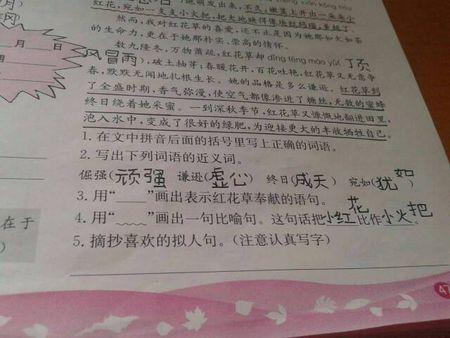 红花,宛如一支支小火把,把大地映得像块丝绒毯,美极了。
然而,我对红花草的喜爱,还不止是因为她那如火如荼
的生命力,更在于她那朴实、崇高的情怀。
数九隆冬,万物萧疏,红花草却dǐng fēng mào yǔ( 顶
风冒雨),破土抽芽;春暖花开,百花吐艳,红花草又无意争
春,默默无闻地扎根生长。她的品格是多么谦逊。红花草到
了全盛时期,香气弥漫,使空气都像渗进了糖浆,无数的蜜蜂
终日绕着她采蜜。一到深秋季节,红花草又慷慨地翻进田里,
泡入水中,变成了很好的绿肥,为迎接更大的丰收牺牲自己。
1. 在文中拼音后面的括号里写上正确的词语。
2. 写出下列词语的近义词。
倔强(顽强) 谦逊(虚心) 终日(成天) 宛如(犹如)
3. 用“____”画出表示红花草奉献的语句。
4. 用“﹏﹏”画出一句比喻句。这句话把小红花比作小火把。
5. 摘抄喜欢的拟人句。(注意认真写字)
在于
47